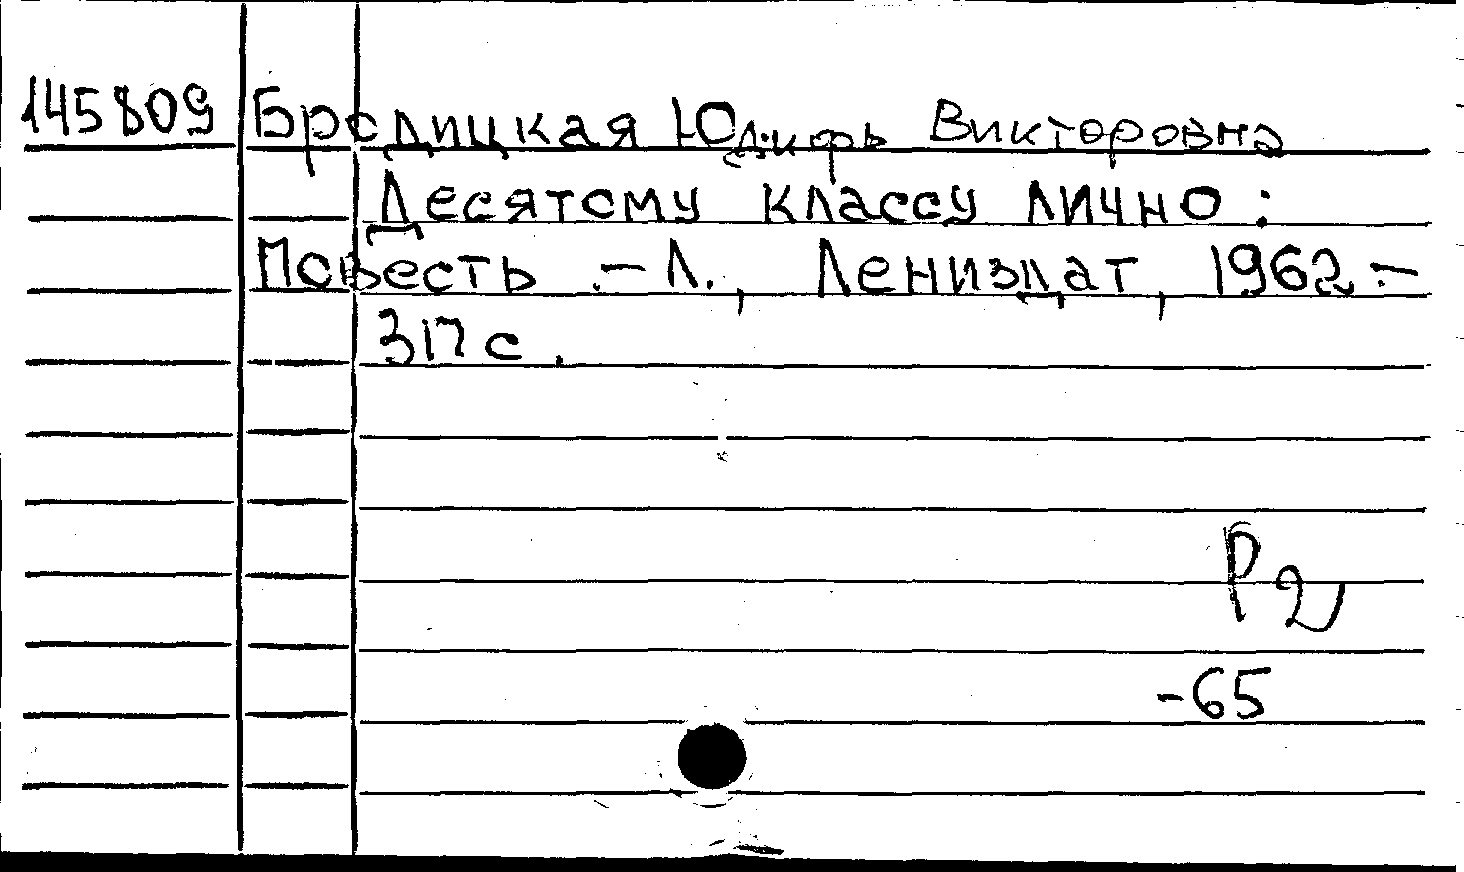 145809 Бродицкая Юдифь Викторовна
Десятому классу лично :
Повесть .– Л., Лениздат, 1962.–
317 с.
Р2
-65